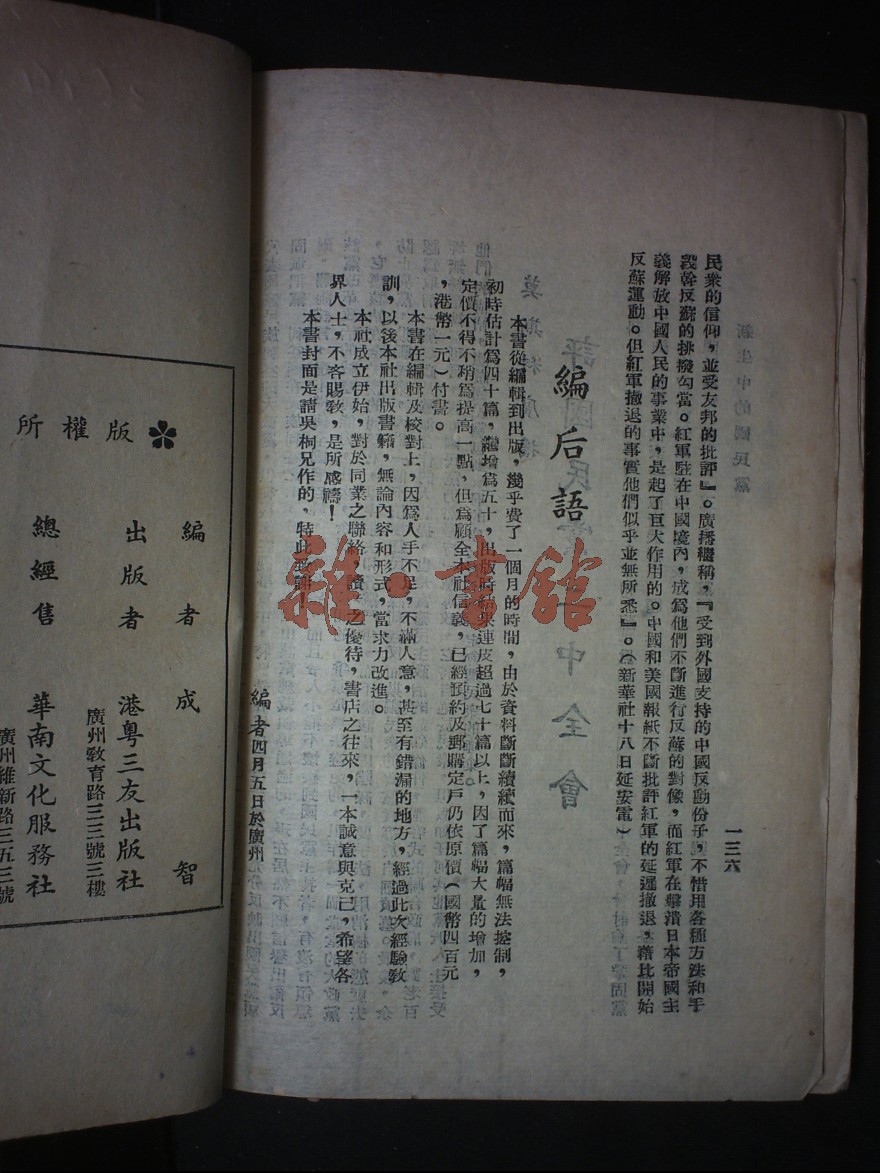 一三六
民衆的信仰，並受友邦的批評』。廣播機稱，『受到外國支持的中國反動份子，不惜用各種方法和手
段幹反蘇的排撥勾當。紅軍駐在中國境內，成爲他們不斷進行反蘇的對像，而紅軍在擊潰日本帝國主
義解放中國人民的事業中，是起了巨大作用的。中國和美國報紙不斷批評紅軍的延遲撤退，藉比開始
反蘇運動。但紅軍撤退的事實他們似乎並無所悉』。（新華社十八日延安電）
編后語
本書從編輯到出版，幾乎費了一個月的時間，由於資料斷斷續續而來，篇幅無法控制，
初時估計爲四十篇，繼增爲五十，出版時結果連皮超過七十篇以上，因了篇幅大量的增加，
定價不得不稍爲提高一點，但爲顧全本社信義，已經預約及郵購定戶仍依原價（國幣四百元
，港幣一元）付書。
本書在編輯及校對上，因爲人手不足，不滿人意，甚至有錯漏的地方，經過此次經驗教
訓，以後本社出版書籍，無論內容和形式，當求力改進。
本社成立伊始，對於同業之聯絡，讀之優待，書店之往來，一本誠意與克己，希望各
界人士，不客賜敎，是所感禱！
本書封面是請吳桐兄作的，特此致謝
編者四月五日於廣州
雜·書館
版權所
編者成智
出版者 港粵三友出版社
廣州敎育路三三號三樓
總經售 華南文化服務社
廣州維新路三五三號